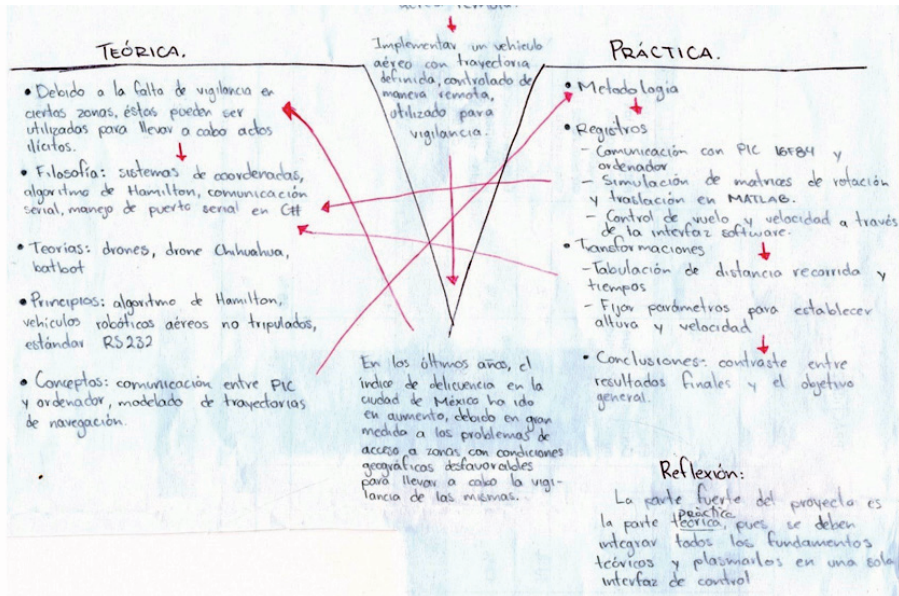 TEÓRICA.
• Debido a la falta de vigilancia en
ciertas zonas, éstas pueden ser
utilizadas para llevar a cabo actos
ilícitos.
• Filosofía: sistemas de coordenadas,
algoritmo de Hamilton, comunicación
serial, manejo de puerto serial en C#
• Teorías: drones, drone Chihuahua,
batbot
• Principios: algoritmo de Hamilton,
vehículos robóticos aéreos no tripulados,
estándar RS232
• Conceptos: comunicación entre PIC
y ordenador, modelado de trayectorias
de navegación.
Implementar un vehículo
aéreo con trayectoria
definida, controlado de
manera remota,
utilizado para
vigilancia.
En los últimos años, el
índice de delicuencia en la
ciudad de México ha ido
en aumento, debido en gran
medida a los problemas de
acceso a zonas con condiciones
geográficas desfavorables
para llevar a cabo la vigi-
lancia de las mismas...
PRÁCTICA.
• Metodología
• Registros
- Comunicación con PIC 16F84 y
ordenador
- Simulación de matrices de rotación
y traslación en MATLAB.
- Control de vuelo y velocidad a través
de la interfaz software.
• Transformaciones
- Tabulación de distancia recorrida y
tiempos
- Fijar parámetros para establecer
altura y velocidad
• Conclusiones: contraste entre
resultados finales y el objetivo
general.
Reflexión:
La parte fuerte del proyecto es
práctica
la parte teórica, pues se deben
integrar todos los fundamentos
teóricos y plasmarlos en una sola
interfaz de control